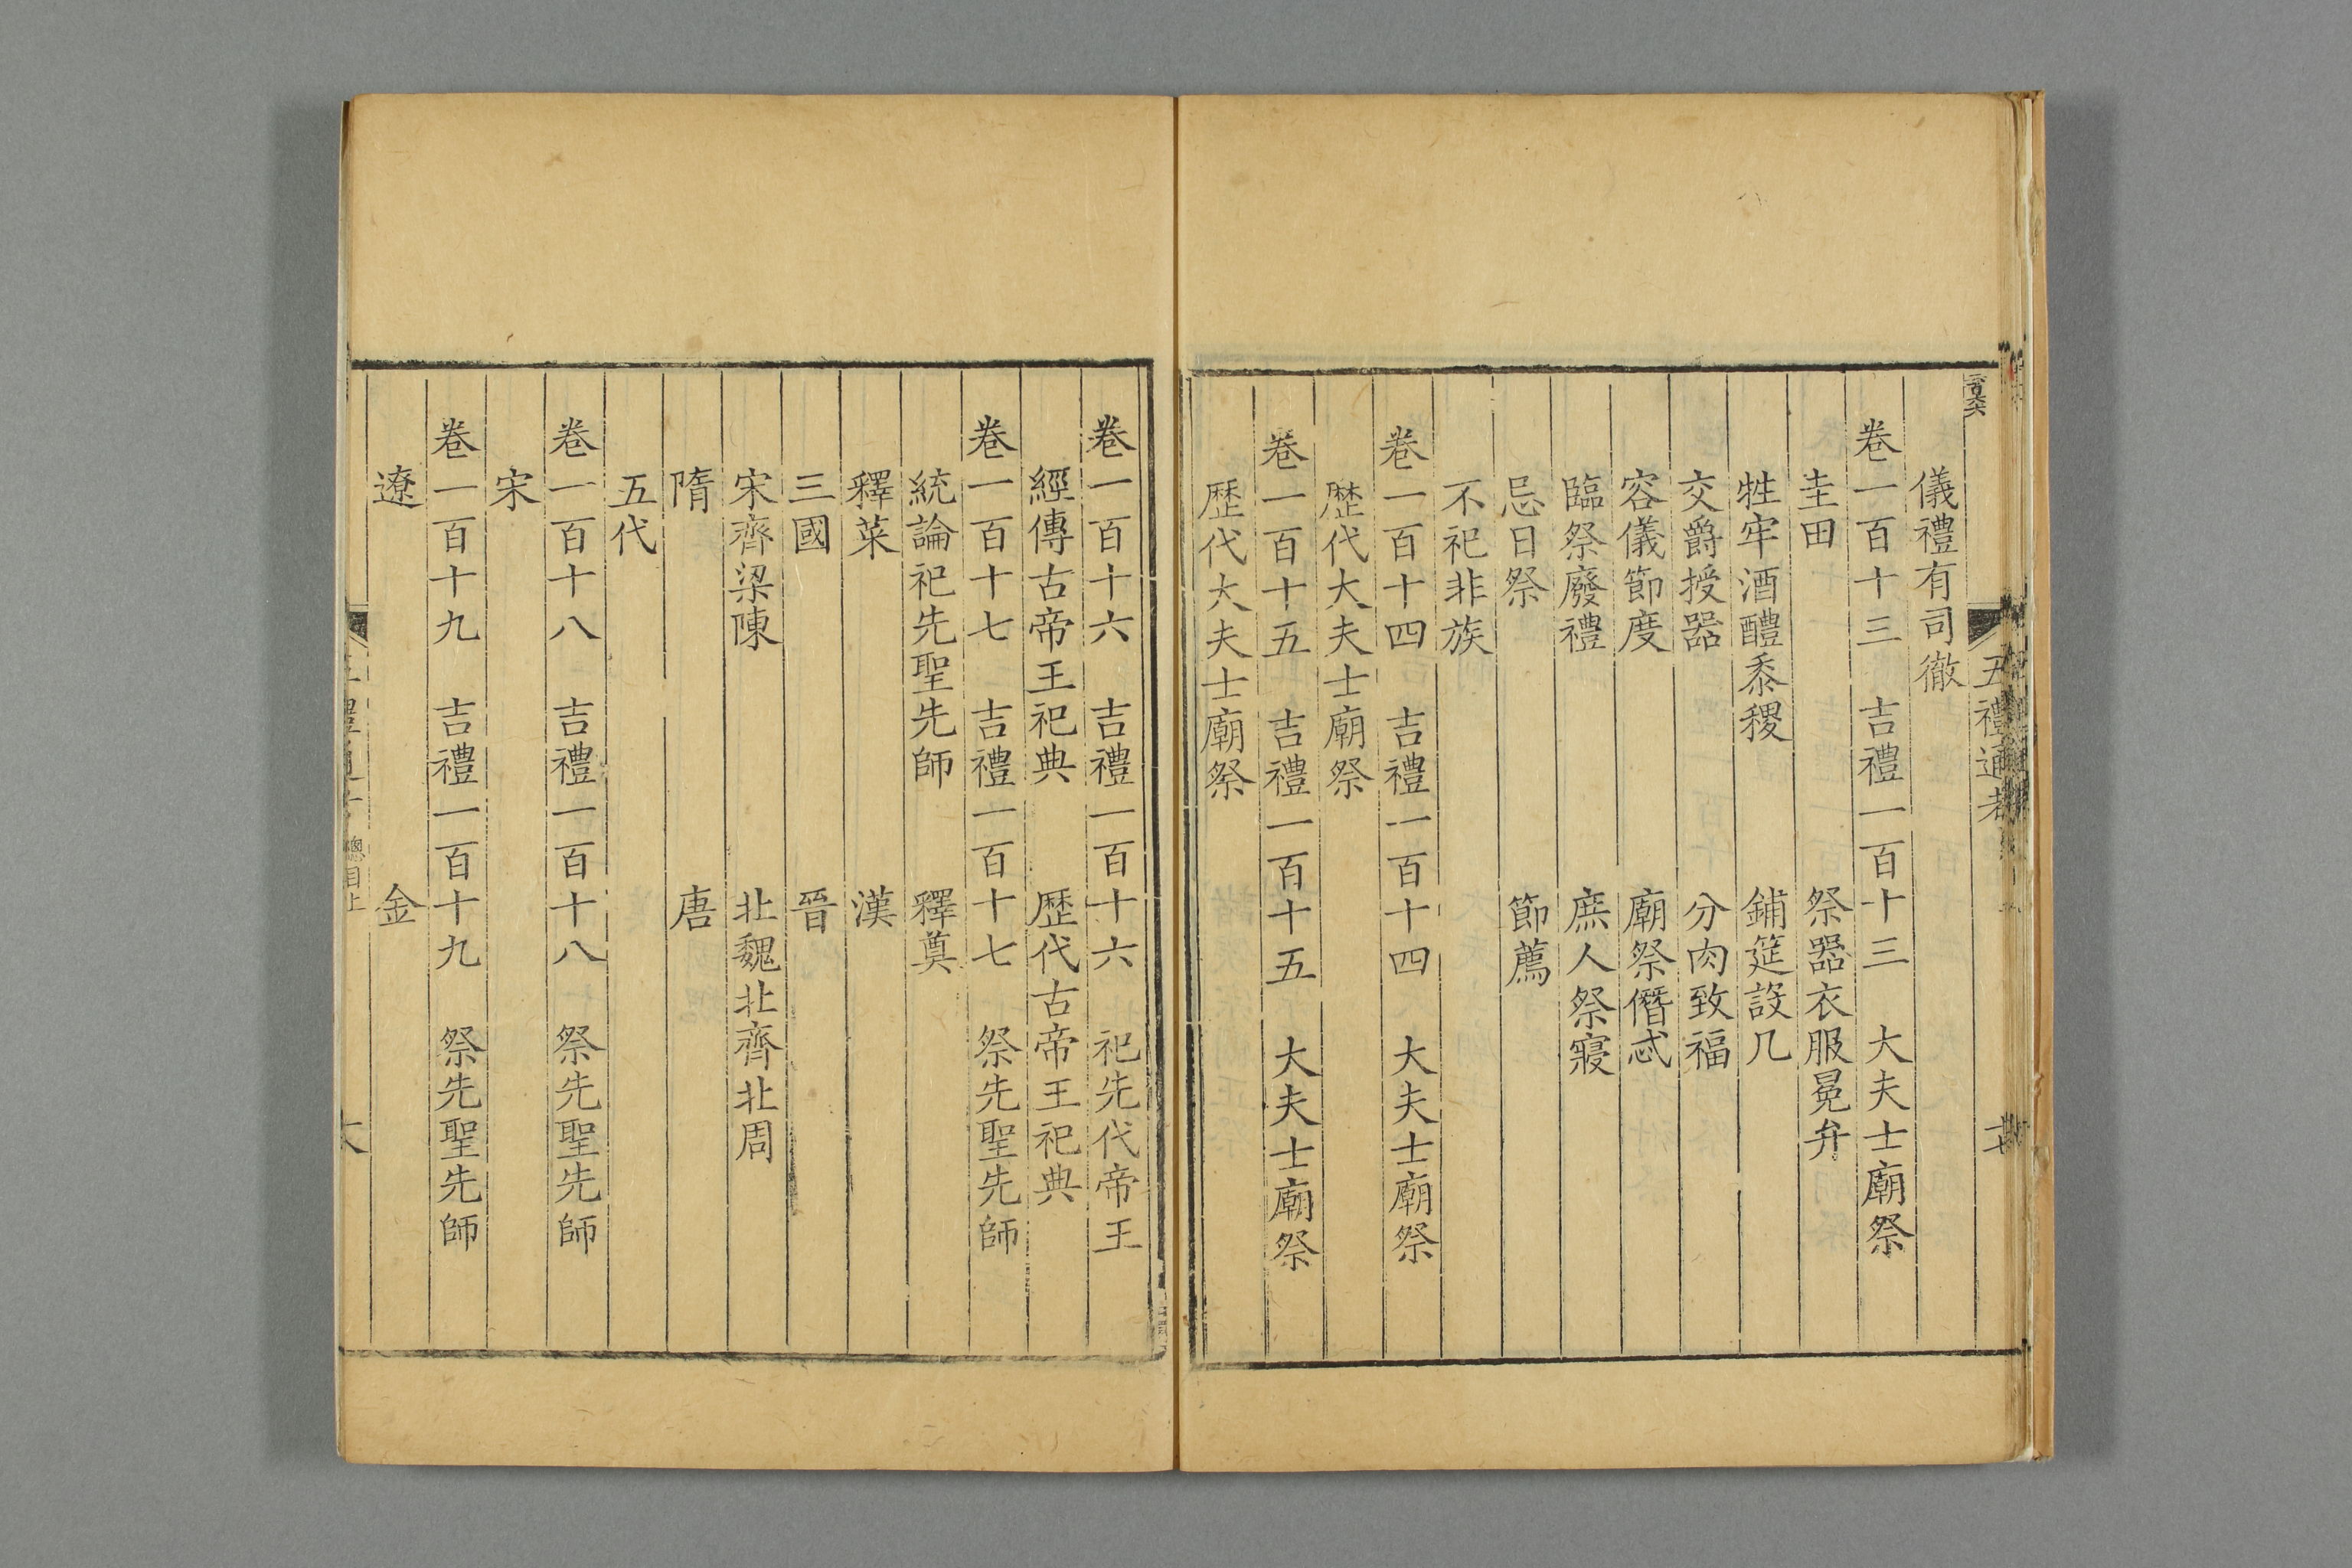 五禮通考
儀禮有司徹
卷一百十三　吉禮一百十三　大夫士廟祭
圭田　祭器衣服冕弁
牲牢酒醴黍稷　鋪筵設几
交爵授器　分肉致福
容儀節度　廟祭僭忒
臨祭廢禮　庶人祭寢
忌日祭　節薦
不祀非族
卷一百十四　吉禮一百十四　大夫士廟祭
歷代大夫士廟祭
卷一百十五　吉禮一百十五　大夫士廟祭
歷代大夫士廟祭
卷一百十六　吉禮一百十六　祀先代帝王
經傳古帝王祀典　歷代古帝王祀典
卷一百十七　吉禮一百十七　祭先聖先師
統論祀先聖先師　釋奠
釋菜　漢
三國　晉
宋齊梁陳　北魏北齊北周
隋　唐
五代
卷一百十八　吉禮一百十八　祭先聖先師
宋
卷一百十九　吉禮一百十九　祭先聖先師
遼　金
總目上